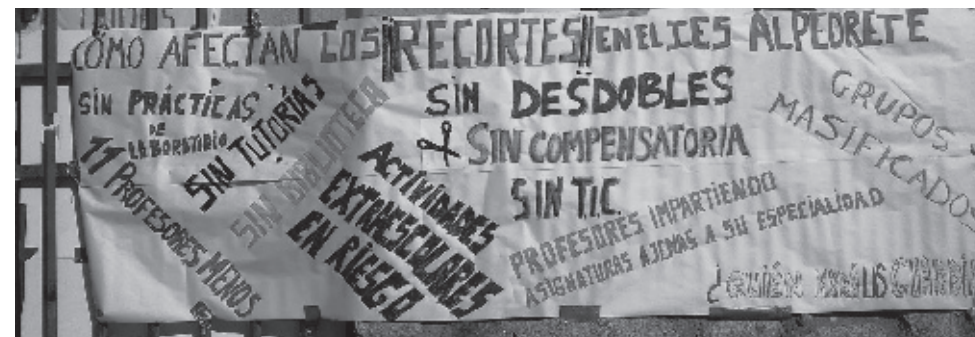 CÓMO AFECTAN LOS ¡¡RECORTES!! EN EL IES ALPEDRETE
SIN PRÁCTICAS
DE
LABORATORIO
11 PROFESORES MENOS
SIN TUTORÍAS
SIN BIBLIOTECA
ACTIVIDADES
EXTRAESCOLARES
EN RIESGO
SIN DESDOBLES
SIN COMPENSATORIA
SIN T.I.C.
PROFESORES IMPARTIENDO
ASIGNATURAS AJENAS A SU ESPECIALIDAD
GRUPOS
MASIFICADOS
¿quién